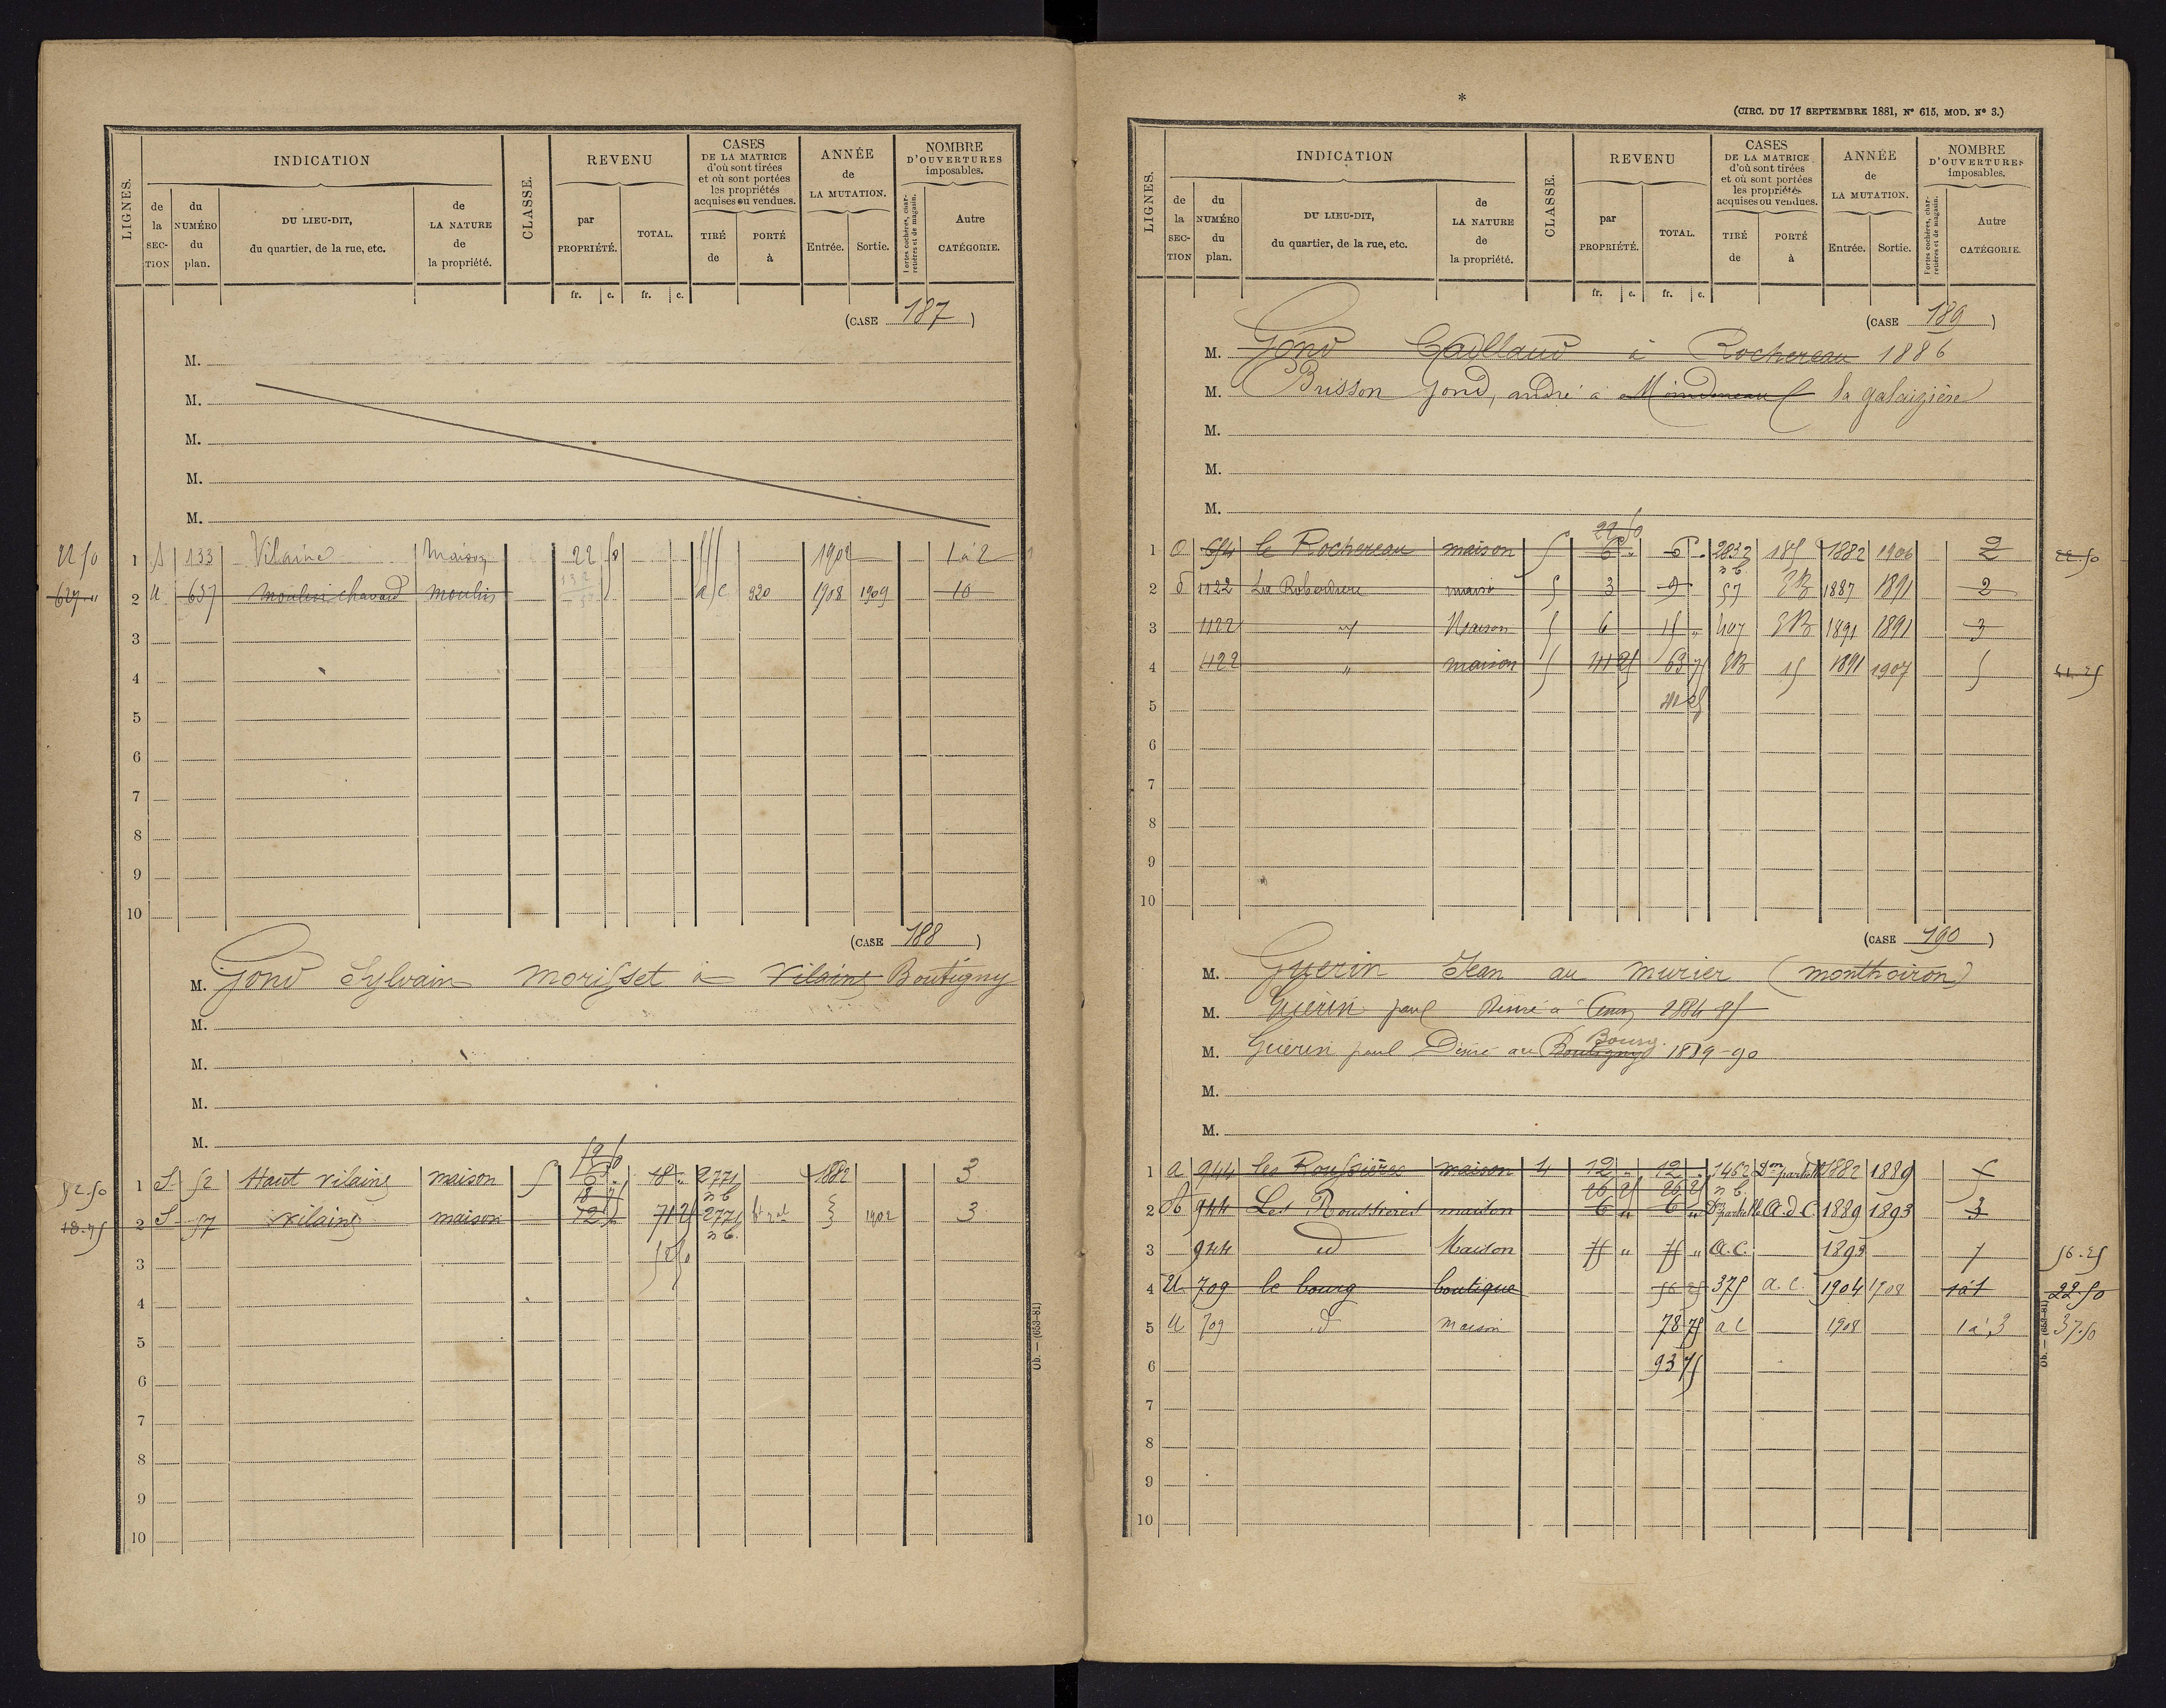 LIGNES.
INDICATION
de la SECTION
du NUMÉRO du plan.
DU LIEU-DIT, du quartier, de la rue, etc.
de LA NATURE de la propriété.
CLASSE.
REVENU
par PROPRIÉTÉ.
TOTAL.
CASES DE LA MATRICE d'où sont tirées et où sont portées les propriétés acquises ou vendues.
TIRÉ de
PORTÉ à
ANNÉE de LA MUTATION.
Entrée.
Sortie.
NOMBRE D'OUVERTURES imposables.
Portes cochères, charretières et de magasin.
Autre CATÉGORIE.
fr. c. fr. c.
(CASE 187)
M.
M.
M.
M.
M.
22 50 1 133 Vilaine Maison 22 50 1902 1 à 2
627 " 2 U 637 Moulin chavard moulin a/c 920 1908 1909 10
3
4
5
6
7
8
9
10
(CASE 188)
M. Gond Sylvain Morisset à Vilaine Boutigny
M.
M.
M.
M.
52 50
52.50 1 S 52 Haut vilaine maison 5 6 " 18 " 2771 1882 3
18 75 n b
18.75 2 S 57 vilaine maison 12 71 25 2771 1902 3
n b.
52 50
3
4
5
6
7
8
9
10
Ob. — (653-81)
*
(CIRC. DU 17 SEPTEMBRE 1881, N° 615, MOD. N° 3.)
LIGNES.
INDICATION
de la SECTION
du NUMÉRO du plan.
DU LIEU-DIT, du quartier, de la rue, etc.
de LA NATURE de la propriété.
CLASSE.
REVENU
par PROPRIÉTÉ.
TOTAL.
CASES DE LA MATRICE d'où sont tirées et où sont portées les propriétés acquises ou vendues.
TIRÉ de
PORTÉ à
ANNÉE de LA MUTATION.
Entrée.
Sortie.
NOMBRE D'OUVERTURES imposables.
Portes cochères, charretières et de magasin.
Autre CATÉGORIE.
fr. c. fr. c.
(CASE 189)
M. Gond Caillaud à Rochereau 1886
M. Brisson Gond, andré à la galaizière
M.
M.
M.
22 50
1 O 654 le Rochereau maison 5 6 " 6 " 2832 185 1882 1906 2 22.50
n b.
2 1122 La maison 5 3 9 57 EB 1887 1891 2
3 1122 " Maison 5 6 15 " 407 EB 1891 1891 3
4 1122 " maison 5 41 25 63 75 EB 15 1891 1907 5 41.25
41 25
5
6
7
8
9
10
(CASE 190)
M. Guerin Jean au murier (monthoiron)
M. Guérin paul Désiré à 1884 85
M. Guerin paul Désiré au Boutigny Bourg 1889-90
M.
M.
1 a 944 les Roussières maison 4 12 " 12 " 1462 Don partielle 1882 1889 5
26 25 26 25 n b.
2 944 Les Roussieres maison 6 " 6 " Don partielle a.d.C. 1889 1893 3
3 944 id Maison 75 " 75 " a.C. 1893 7 56.25
4 U 709 le bourg boutique 56 25 375 a.c. 1904 1908 1 à 1 22.50
5 U 709 d° Maison 78 75 a c 1908 1 à 3 37.50
6 93 75
7
8
9
10
Ob. — (653-81)